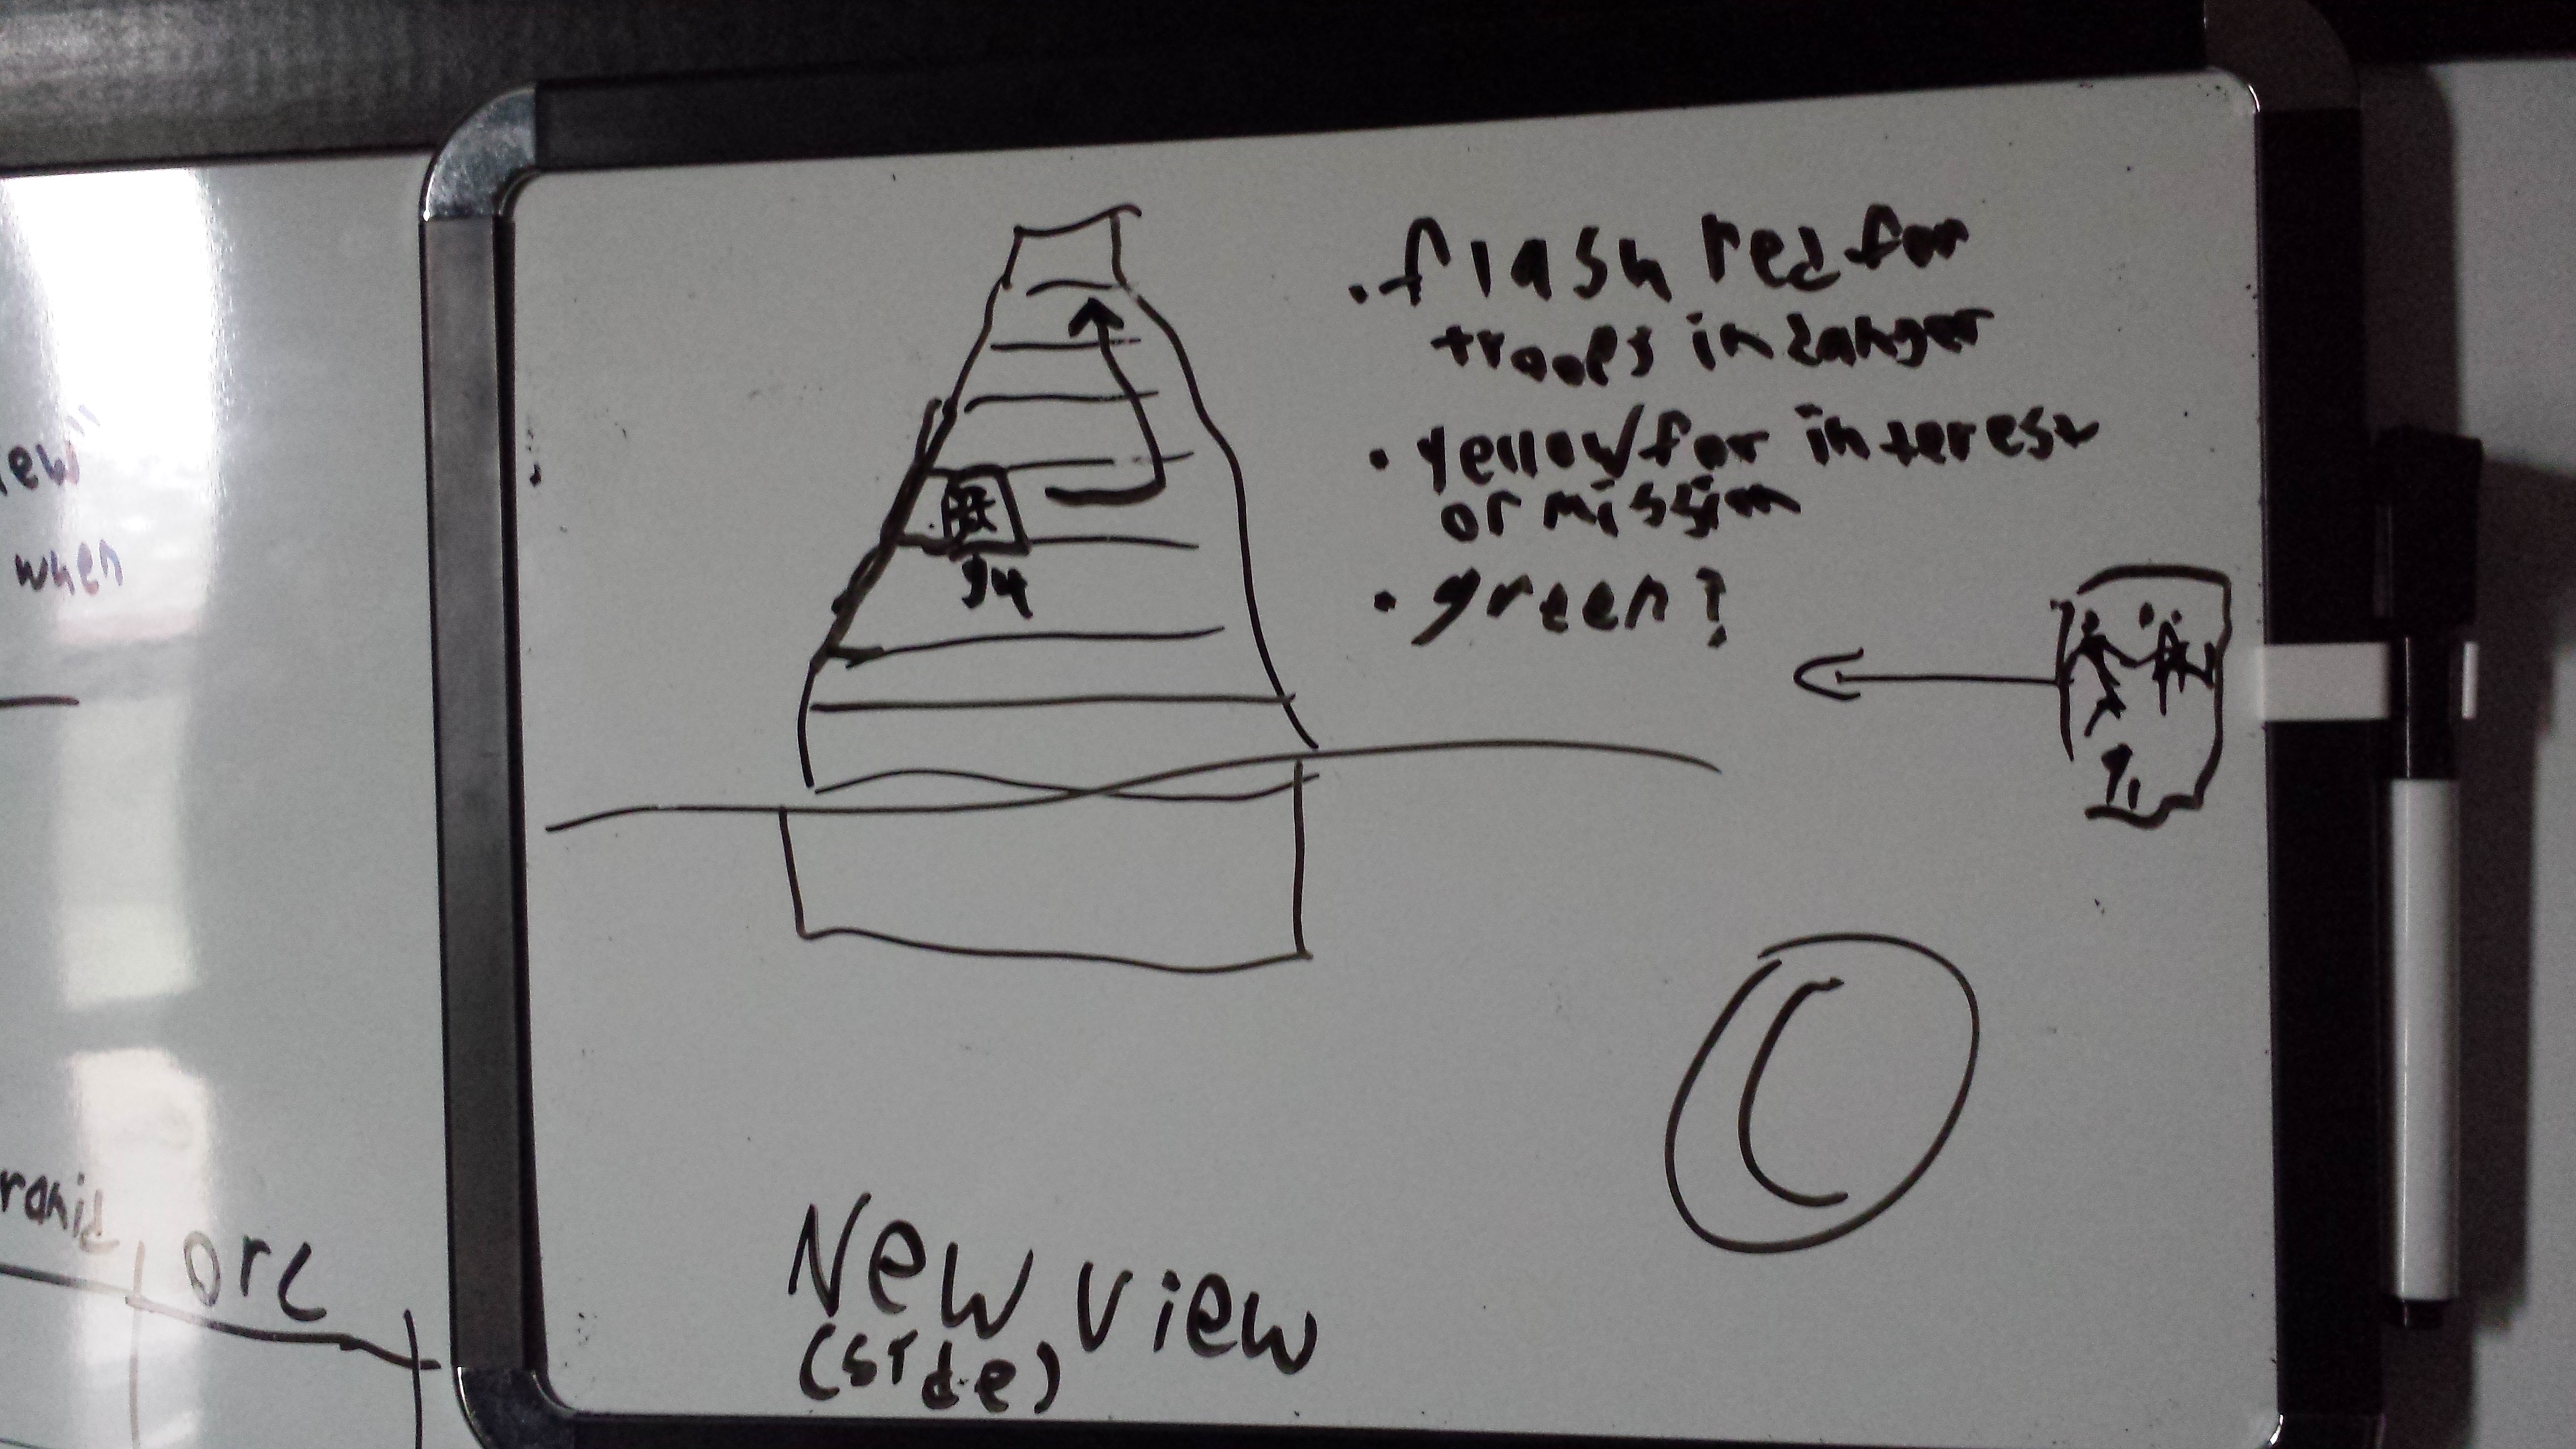 iew"
when
ramid
orc
• flash red for
troops in danger
• yellow for interest
or mission
• green?
94
91
New view
(side)